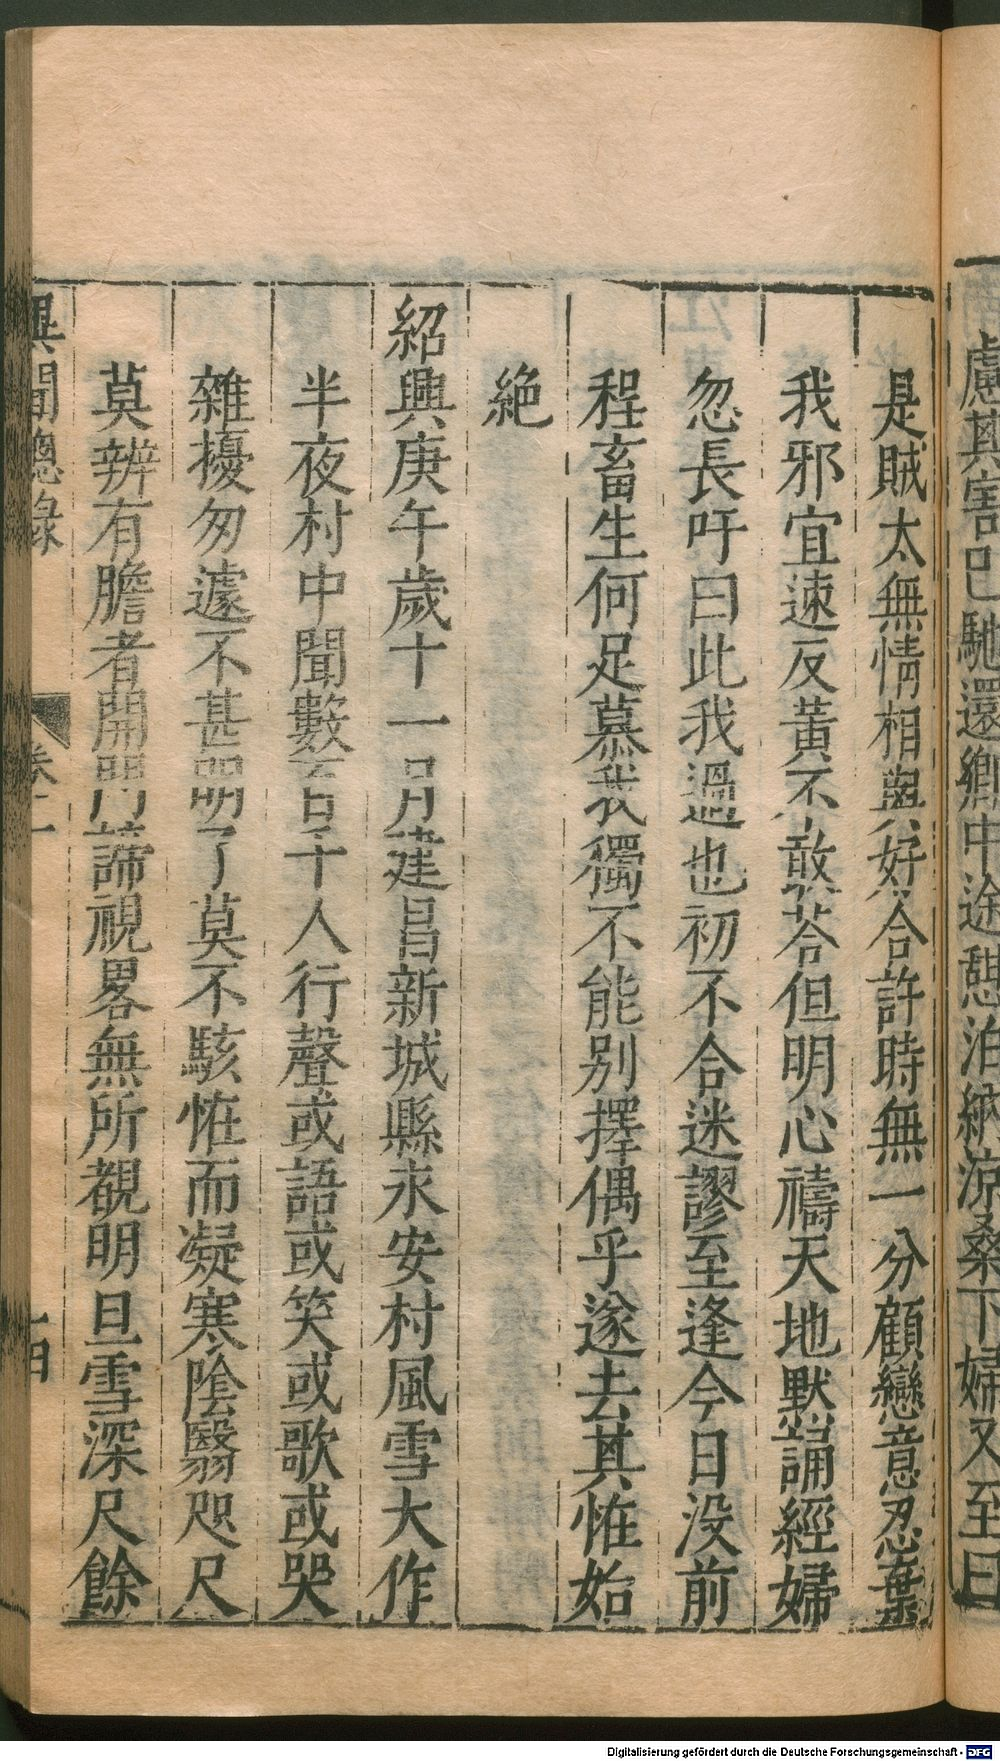 慮其害已馳還鄉中途憩泊納涼桑下婦又至曰
是賊太無情相與好合許時無一分顧戀意忍棄
我邪宜速反黃不敢荅但明心禱天地默誦經婦
忽長吁曰此我過也初不合迷謬至逢今日没前
程畜生何足慕我獨不能别擇偶乎遂去其恠始
絶
紹興庚午歲十一月建昌新城縣永安村風雪大作
半夜村中聞數百千人行聲或語或笑或歌或哭
雜擾匆遽不甚明了莫不駭恠而凝寒陰翳咫尺
莫辨有膽者開門諦視畧無所覩明旦雪深尺餘
異聞總錄
卷二
Digitalisierung gefördert durch die Deutsche Forschungsgemeinschaft - DFG